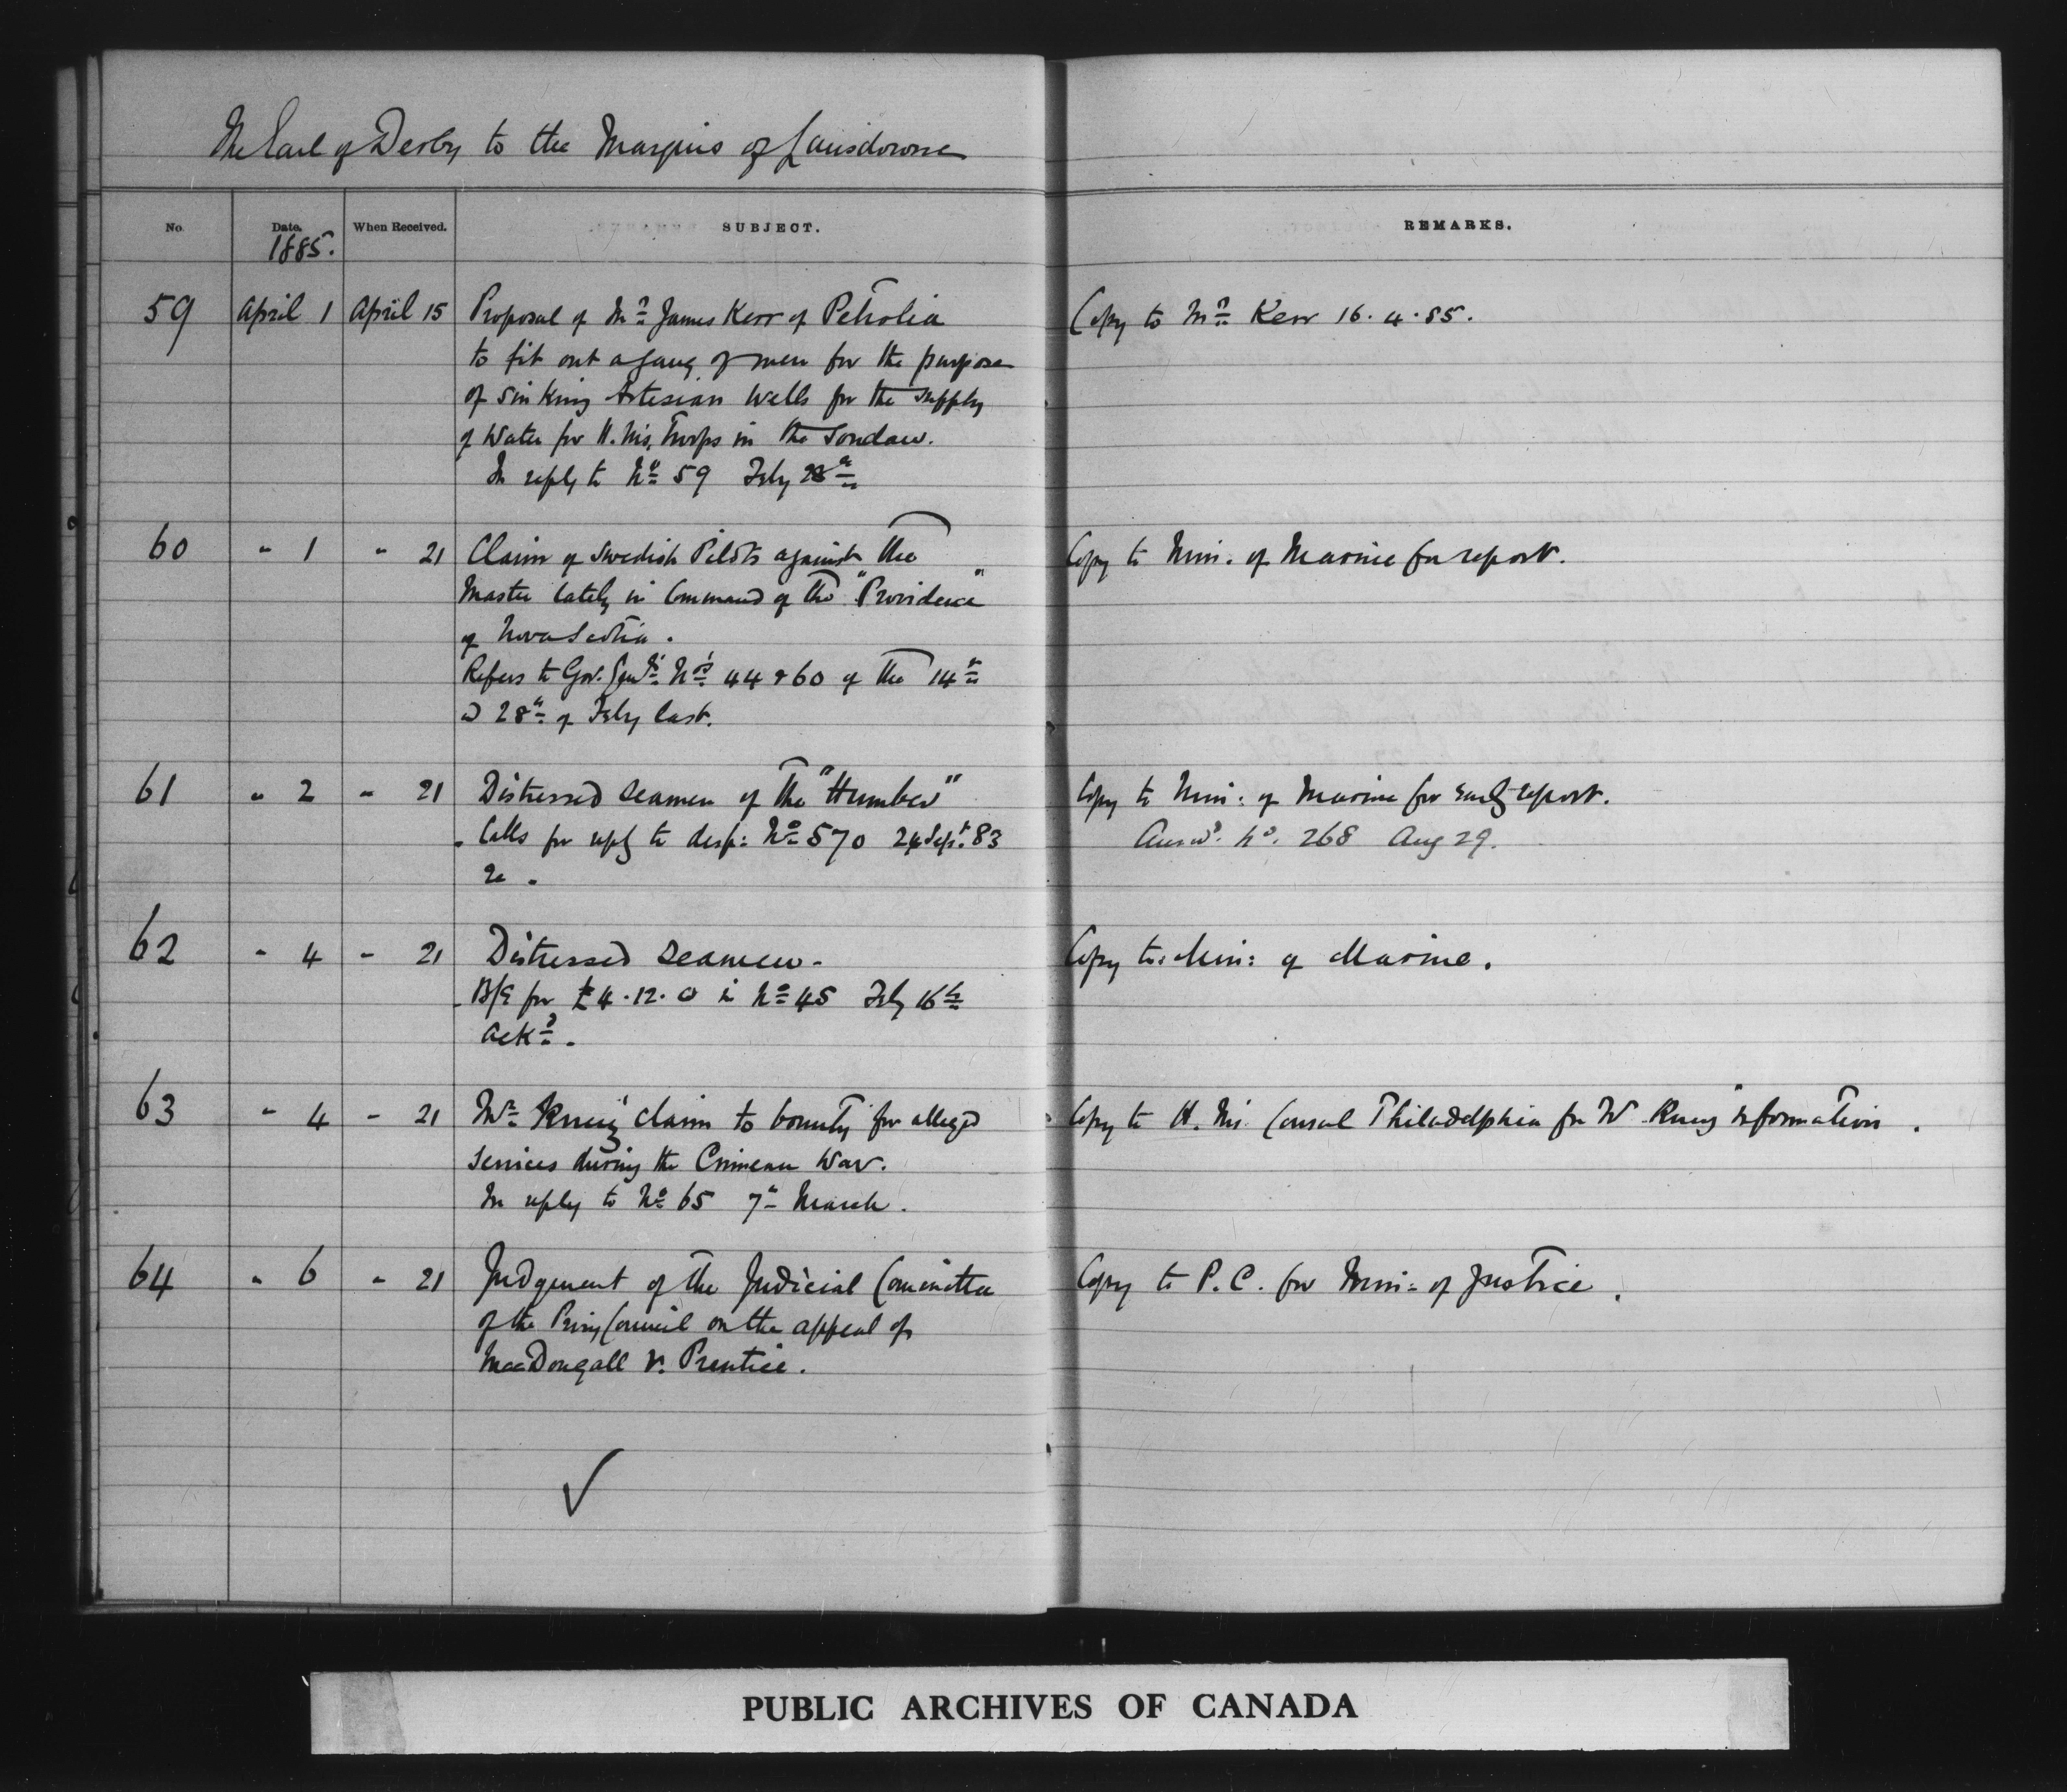 The Earl of Derby to the Marquis of Lansdowne
No. Date. When Received. SUBJECT. REMARKS.
1885.
59 April 1 April 15 Proposal of Mr. James Kerr of Petrolia Copy to Mr. Kerr 16.4.85.
to fit out a gang of men for the purpose
of sinking Artesian Wells for the supply
of Water for H. M's. Troops in the Soudan.
In reply to No. 59 Feby 28th
60 " 1 " 21 Claim of Swedish Pilots against the Copy to Min. of Marine for report.
Master lately in Command of the "Providence"
of Nova Scotia.
Refers to Gov. Genl's Nos. 44 & 60 of the 14th
& 28th of Feby last.
61 " 2 " 21 Distressed Seamen of the "Humber" Copy to Min: of Marine for early report.
Calls for reply to desp: No. 570 24 Sept. 83 Answd. No. 268 Aug 29.
62 " 4 " 21 Distressed Seamen - Copy to Min: of Marine.
B/E for £4.12.0 in No. 45 Feby 16th
Ackd. -
63 " 4 " 21 Mr. claim to bounty for alleged Copy to H. M's. Consul Philadelphia for information.
services during the Crimean War.
In reply to No. 65 7th March.
64 " 6 " 21 Judgment of the Judicial Committee Copy to P.C. for Min: of Justice.
of the Privy Council on the appeal of
MacDougall v. Prentice.
PUBLIC ARCHIVES OF CANADA